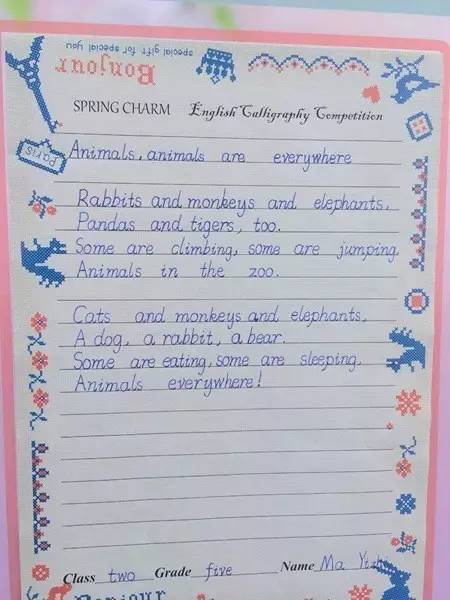 special gift for special you
Bonjour
SPRING CHARM English Calligraphy Competition
Paris
Animals, animals are everywhere
Rabbits and monkeys and elephants,
Pandas and tigers, too.
Some are climbing, some are jumping.
Animals in the zoo.
Cats and monkeys and elephants,
A dog, a rabbit, a bear.
Some are eating, some are sleeping.
Animals everywhere!
Class two Grade five Name Ma
Bonjour